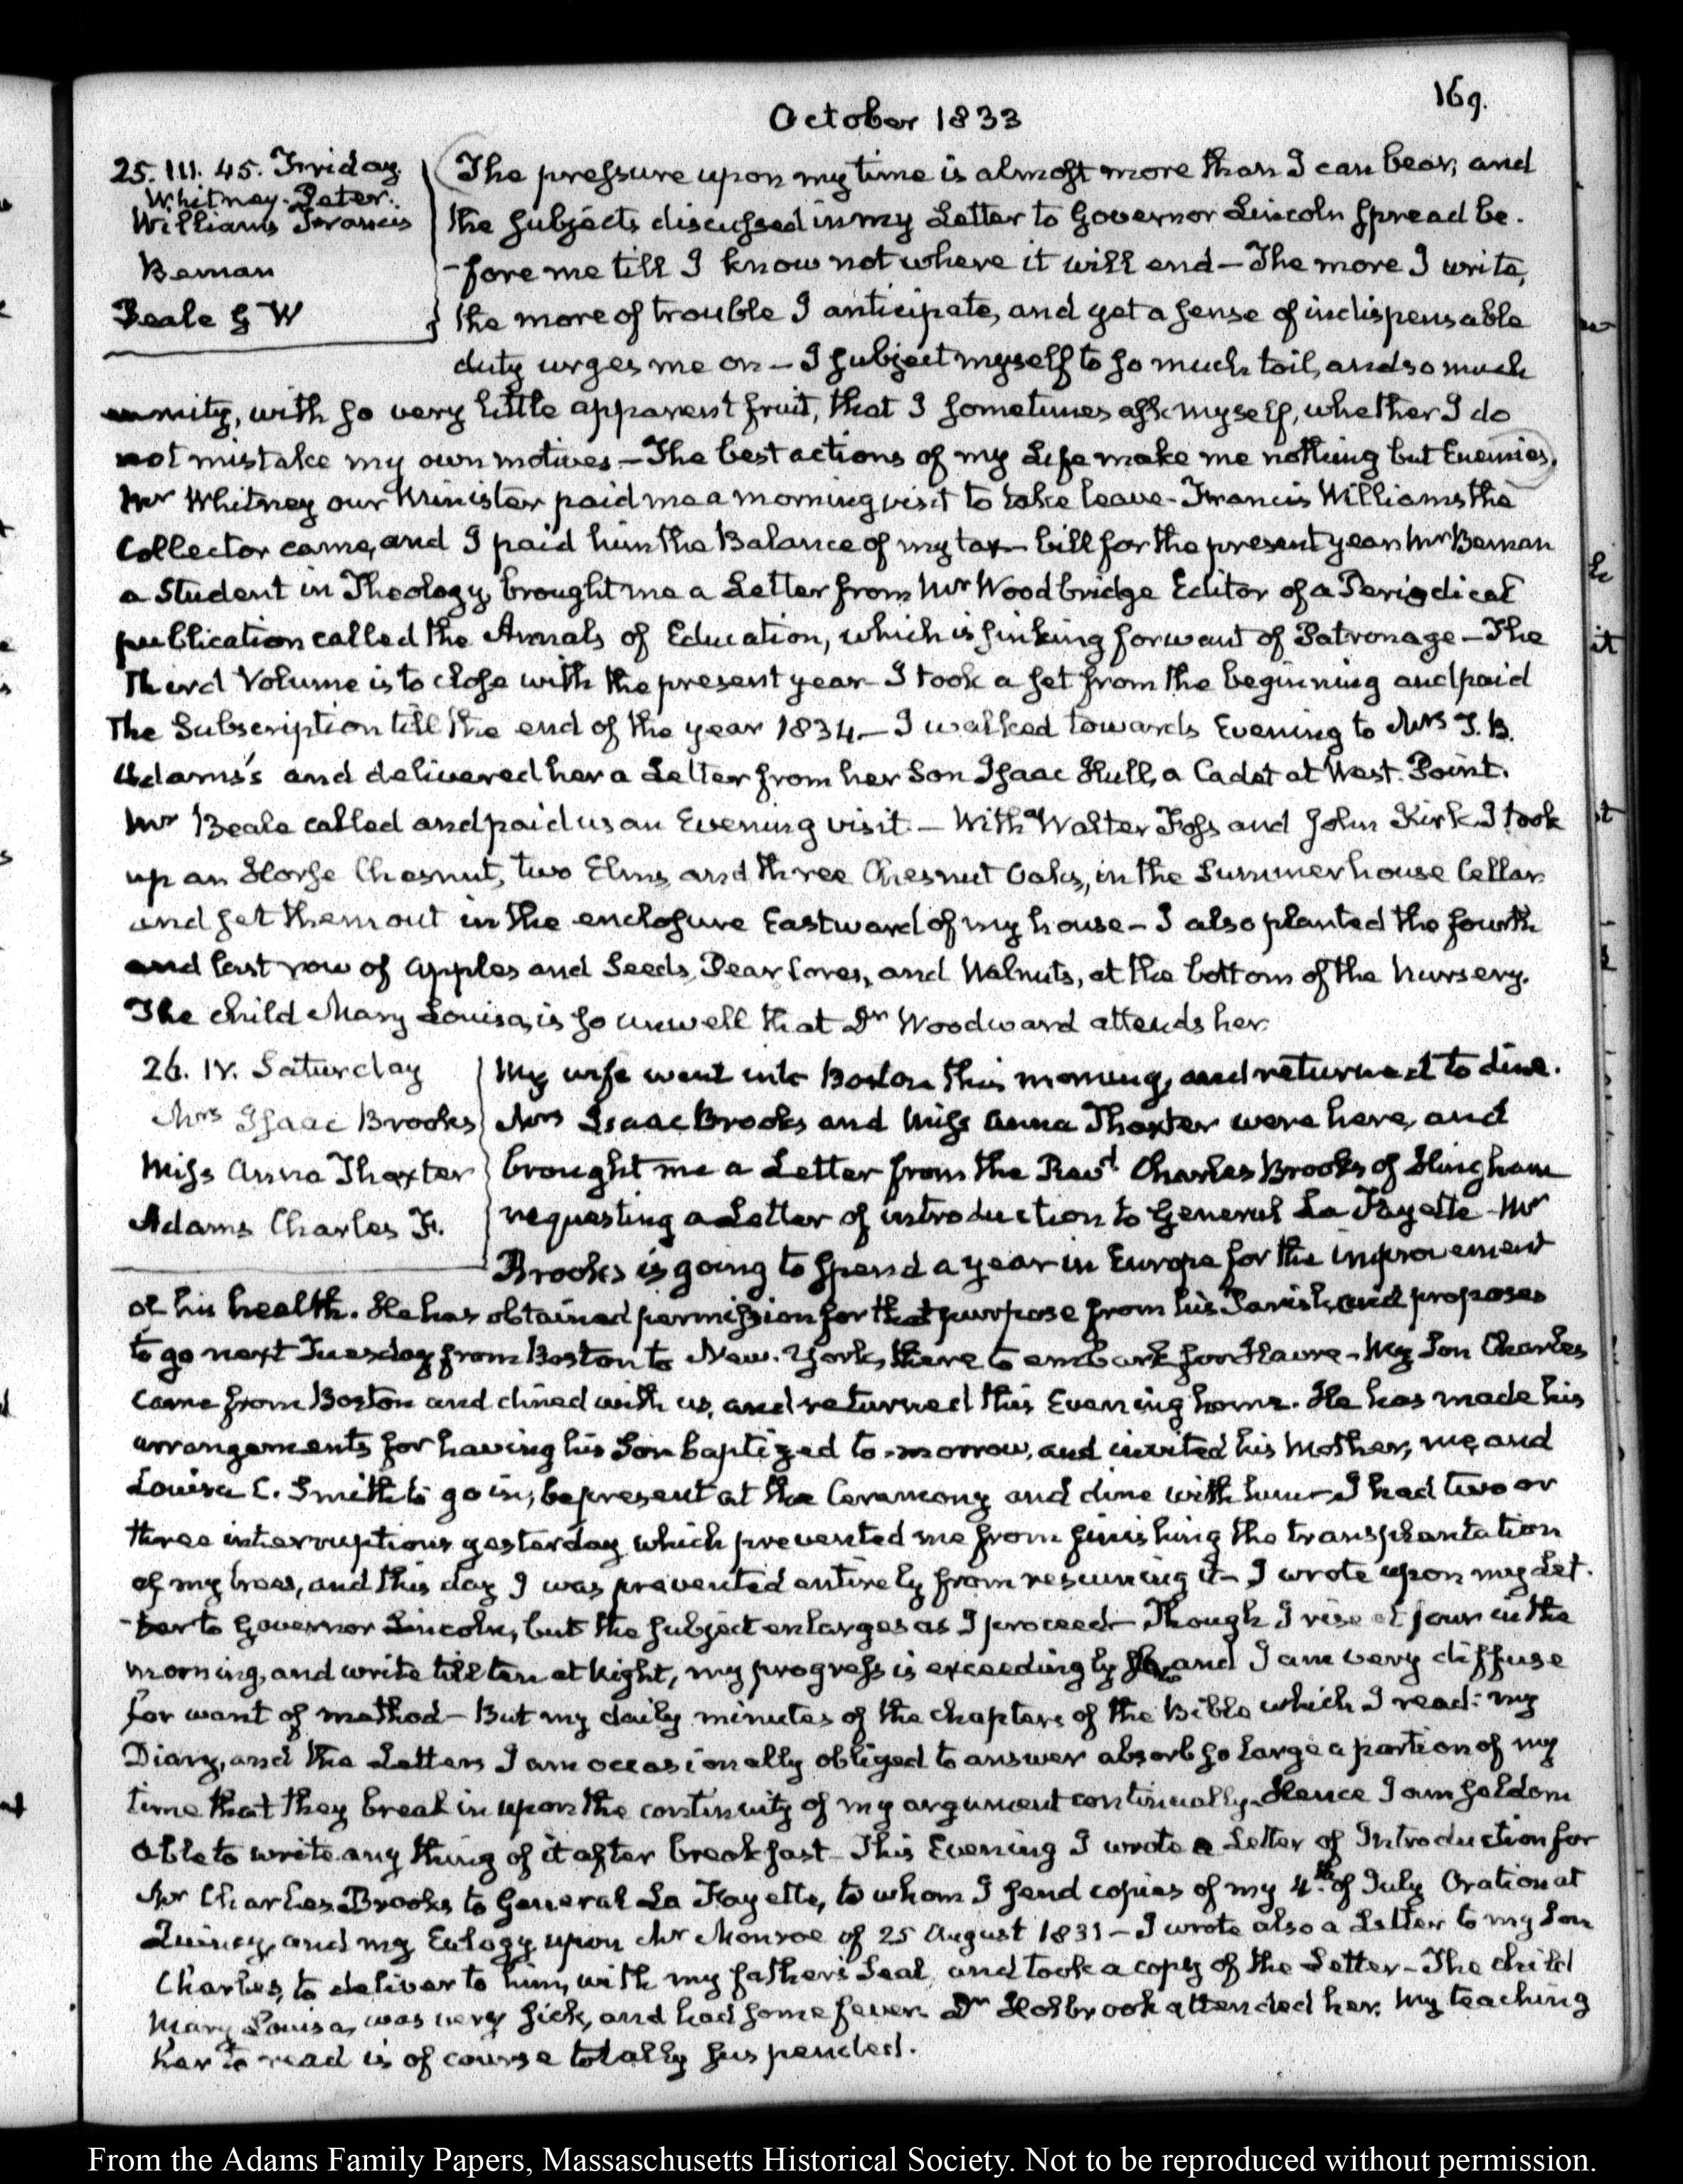 169.
October 1833
25. III. 45. Friday.
Whitney. Peter.
Williams Francis
Beman
Beale G W
The pressure upon my time is almost more than I can bear, and
the subjects discussed in my Letter to Governor Lincoln spread be-
-fore me till I know not where it will end — The more I write,
the more of trouble I anticipate, and yet a sense of indispensable
duty urges me on — I subject myself to so much toil, and so much
enmity, with so very little apparent fruit, that I sometimes ask myself, whether I do
not mistake my own motives — The best actions of my Life make me nothing but Enemies.
Mr Whitney our Minister paid me a morning visit to take leave - Francis Williams the
Collector came, and I paid him the Balance of my tax-bill for the present year Mr Beman
a Student in Theology, brought me a Letter from Mr Woodbridge Editor of a Periodical
publication called the Annals of Education, which is sinking for want of Patronage — The
Third Volume is to close with the present year I took a set from the beginning and paid
The Subscription till the end of the year 1834 — I walked towards Evening to Mrs T. B.
Adams's and delivered her a Letter from her Son Isaac Hull, a Cadet at West-Point.
Mr Beale called and paid us an Evening visit. — With Walter Foss and John Kirk I took
up an Horse Chesnut, two Elms, and three Chesnut Oaks, in the Summerhouse Cellar
and set them out in the enclosure Eastward of my house — I also planted the fourth
and last row of Apples and Seeds, Pear Cores, and Walnuts, at the bottom of the Nursery.
The child Mary Louisa, is so unwell that Dr Woodward attends her.
26. IV. Saturday
Mrs Isaac Brooks
Miss Anna Thaxter
Adams Charles F.
My wife went into Boston this morning, and returned to dine.
Mrs Isaac Brooks and Miss Anna Thaxter were here, and
brought me a Letter from the Revd Charles Brooks of Hingham
requesting a Letter of introduction to General La Fayette - Mr
Brooks is going to spend a year in Europe for the improvement
of his health. He has obtained permission for that purpose from his Parish, and proposes
to go next Tuesday from Boston to New-York, there to embark for Havre - My Son Charles
came from Boston and dined with us, and returned this Evening home. He has made his
arrangements for having his Son baptized to-morrow, and invited his Mother, me, and
Louisa C. Smith to go in, be present at the Ceremony and dine with him - I had two or
three interruptions yesterday which prevented me from finishing the transplantation
of my trees, and this day I was prevented entirely from resuming it - I wrote upon my Let-
-ter to Governor Lincoln, but the subject enlarges as I proceed - Though I rise at four in the
morning, and write till ten at Night, my progress is exceedingly slow, and I am very diffuse
for want of method - But my daily minutes of the chapters of the Bible which I read: my
Diary, and the Letters I am occasionally obliged to answer absorb so large a portion of my
time that they break in upon the continuity of my argument continually. Hence I am seldom
able to write any thing of it after breakfast - This Evening I wrote a Letter of Introduction for
Mr Charles Brooks to General La Fayette, to whom I send copies of my 4th of July Oration at
Quincy, and my Eulogy upon Mr Monroe of 25 August 1831 - I wrote also a Letter to my Son
Charles, to deliver to him, with my father's Seal, and took a copy of the Letter - The child
Mary Louisa, was very sick, and had some fever. Dr Holbrook attended her. My teaching
her to read is of course totally suspended.
From the Adams Family Papers, Massachusetts Historical Society. Not to be reproduced without permission.